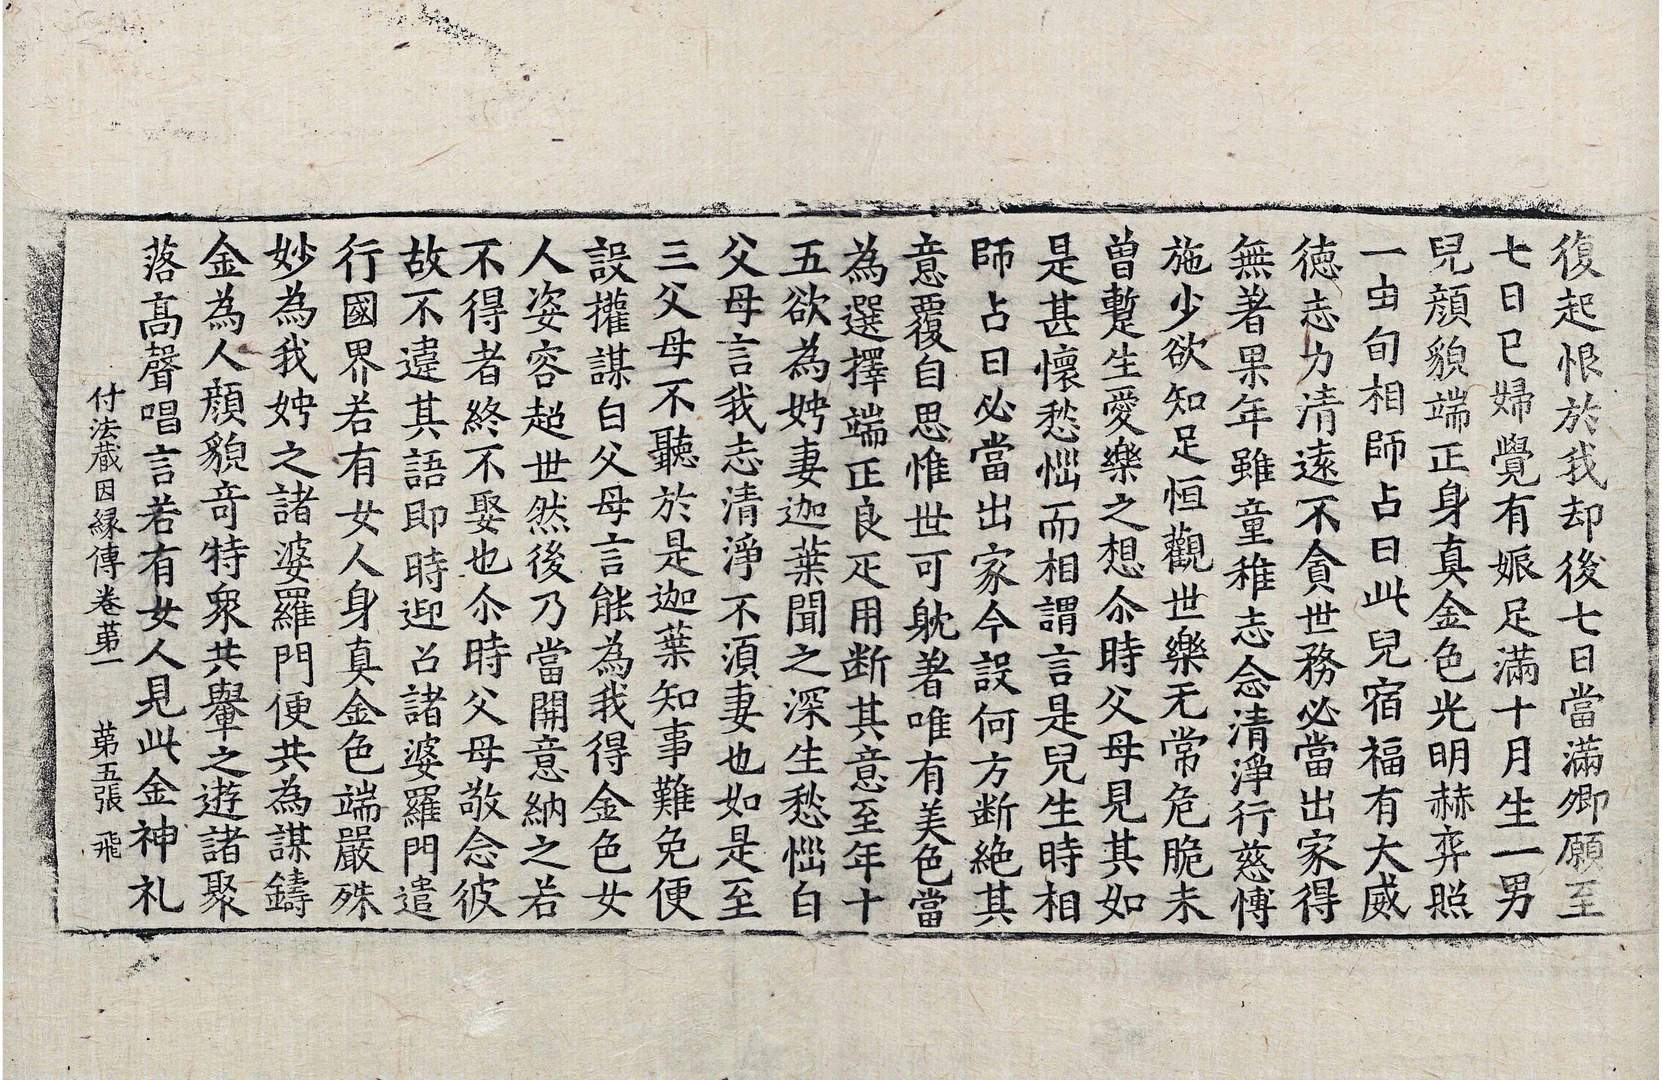 復起恨於我却後七日當滿卿願至
七日已婦覺有娠足滿十月生一男
兒顔貌端正身真金色光明赫弈照
一由旬相師占曰此兒宿福有大威
德志力清遠不貪世務必當出家得
無著果年雖童稚志念清淨行慈愽
施少欲知足恒觀世樂无常危脆未
曽蹔生愛樂之想尒時父母見其如
是甚懷愁惱而相謂言是兒生時相
師占曰必當出家今設何方断絶其
意覆自思惟世可躭著唯有美色當
為選擇端正良疋用断其意至年十
五欲為娉妻迦葉聞之深生愁惱白
父母言我志清淨不湏妻也如是至
三父母不聽於是迦葉知事難免便
設權謀白父母言能為我得金色女
人姿容超世然後乃當開意納之若
不得者終不娶也尒時父母敬念彼
故不違其語即時迎召諸婆羅門遣
行國界若有女人身真金色端嚴殊
妙為我娉之諸婆羅門便共為謀鑄
金為人顔貌竒特衆共轝之遊諸聚
落髙聲唱言若有女人見此金神礼
付法蔵因縁傳卷苐一 苐五張 飛